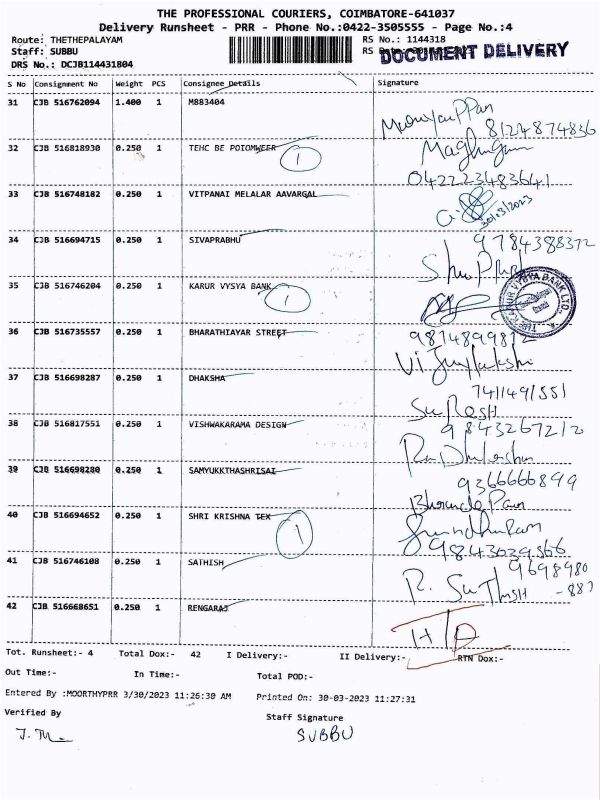 THE PROFESSIONAL COURIERS, COIMBATORE-641037
Delivery Runsheet - PRR - Phone No.:0422-3505555 - Page No.:4
Route: THETHEPALAYAM RS No.: 1144318
Staff: SUBBU RS
DOCUMENT DELIVERY
DRS No.: DCJB114431804
S No Consignment No Weight PCS Consignee Details Signature
31 CJB 516762094 1.400 1 M883404
8124874836
32 CJB 516818930 0.250 1 TEHC BE POIOMWEER 1
0422223483641
33 CJB 516748182 0.250 1 VITPANAI MELALAR AAVARGAL
30/03/2023
34 CJB 516694715 0.250 1 SIVAPRABHU 9784388372
35 CJB 516746204 0.250 1 KARUR VYSYA BANK 1
THE KARUR VYSYA BANK LTD.
36 CJB 516735557 0.250 1 BHARATHIAYAR STREET
37 CJB 516698287 0.250 1 DHAKSHA
7411491551
SuResh
38 CJB 516817551 0.250 1 VISHWAKARAMA DESIGN 9843267212
39 CJB 516698280 0.250 1 SAMYUKKTHASHRISAI 9366666899
40 CJB 516694652 0.250 1 SHRI KRISHNA TEX 1
9843029566
41 CJB 516746108 0.250 1 SATHISH 9698980
-887
42 CJB 516668651 0.250 1 RENGARAJ
Tot. Runsheet:- 4 Total Dox:- 42 I Delivery:- II Delivery:- RTN Dox:-
Out Time:- In Time:- Total POD:-
Entered By :MOORTHYPRR 3/30/2023 11:26:30 AM Printed On: 30-03-2023 11:27:31
Verified By Staff Signature
SUBBU